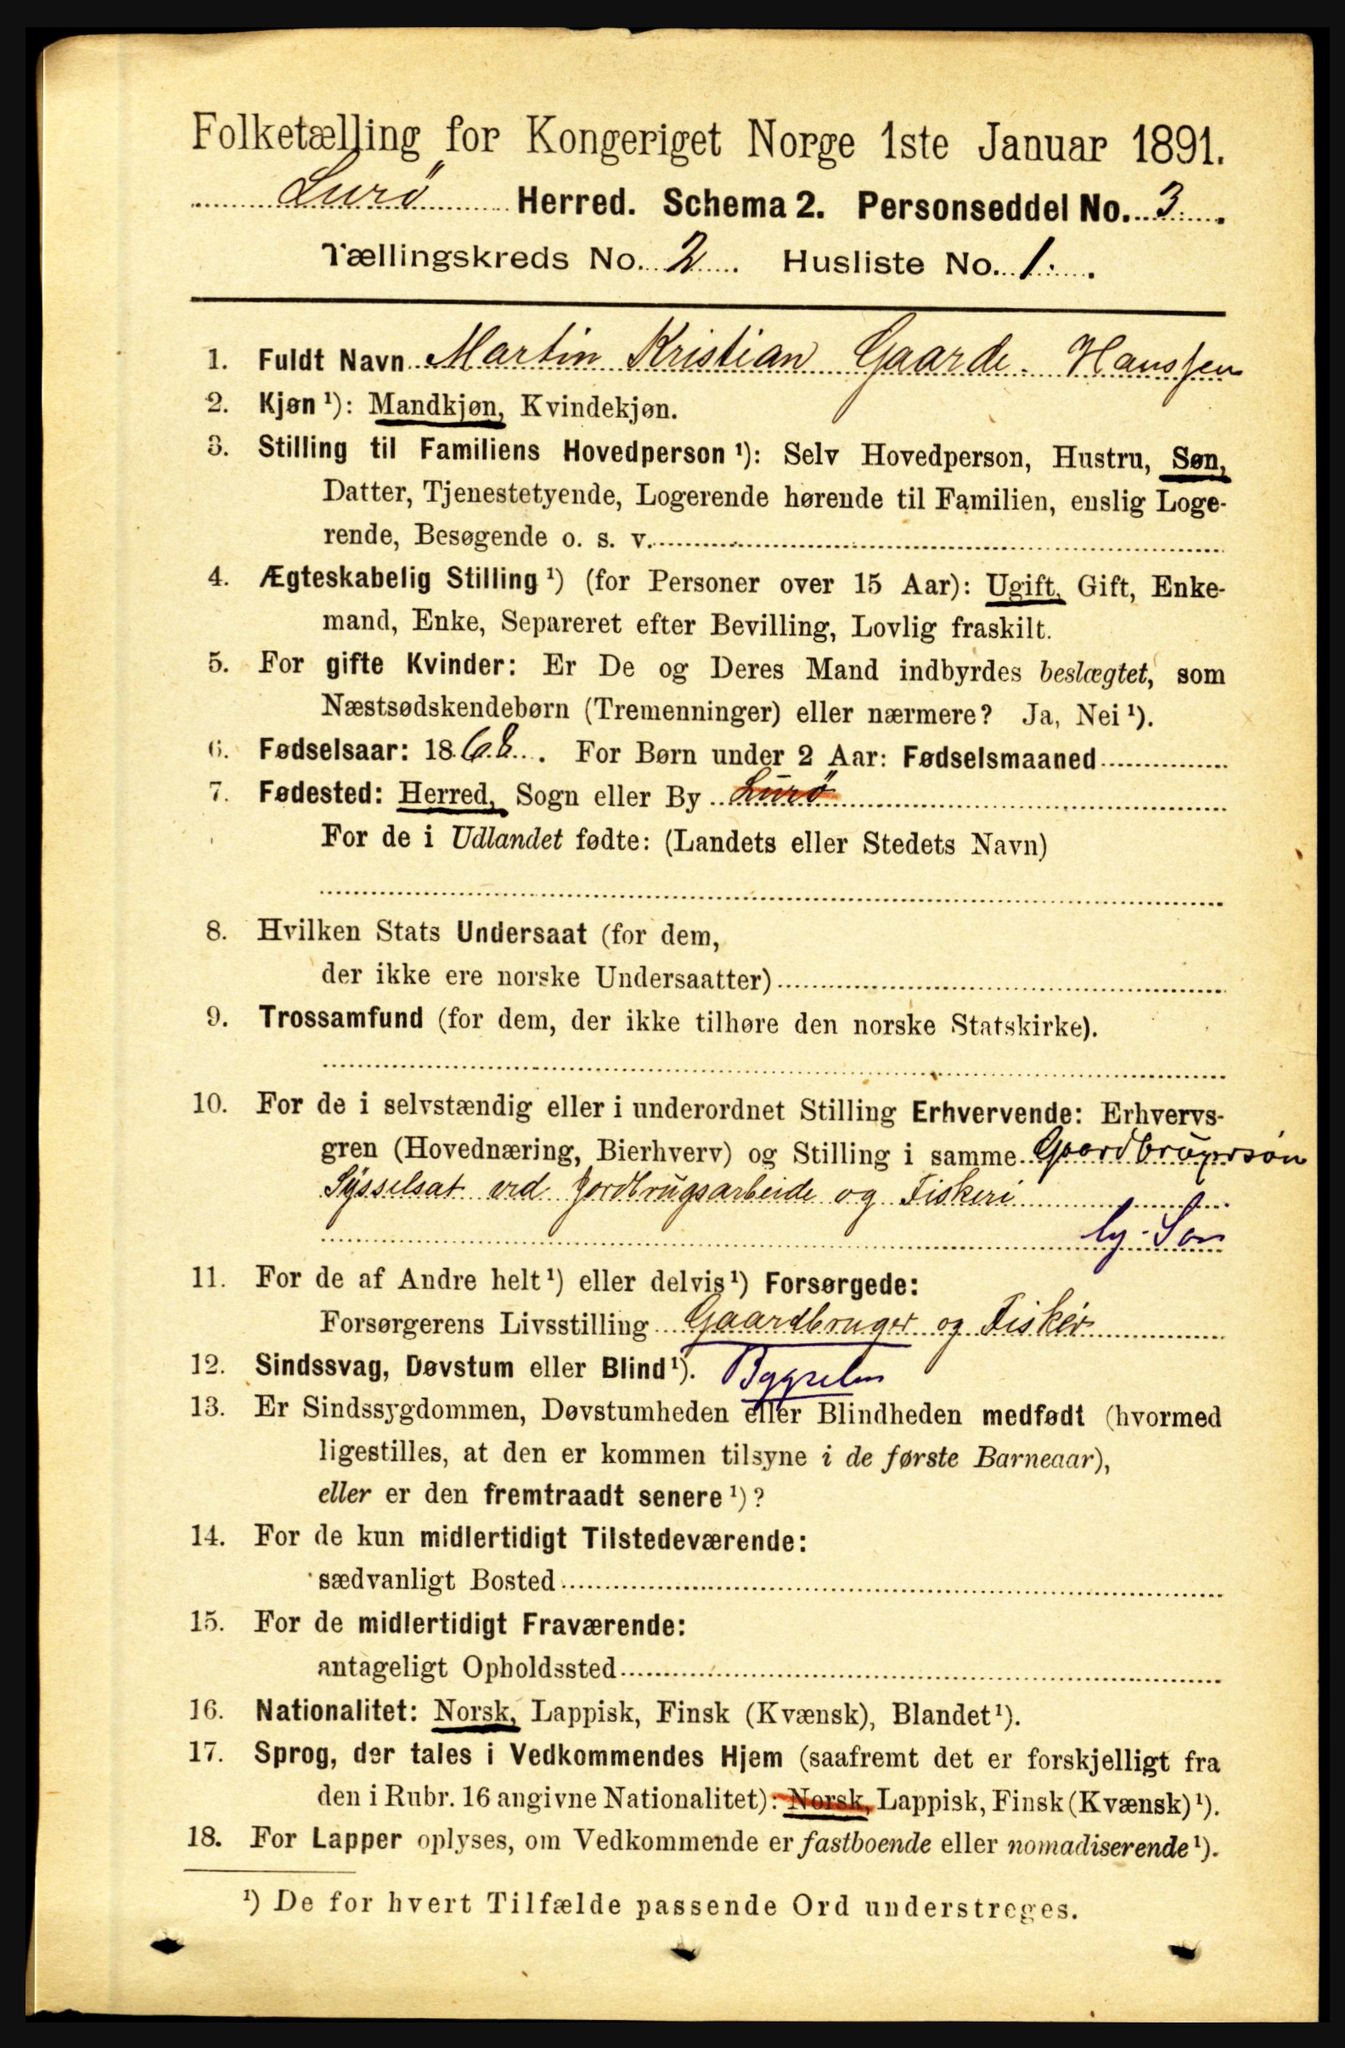 Folketælling for Kongeriget Norge 1ste Januar 1891.
Lurø Herred. Schema 2. Personseddel No. 3.
Tællingskreds No. 2. Husliste No. 1.
1. Fuldt Navn Martin Kristian Gaarde Hanssen
2. Kjøn¹): Mandkjøn, Kvindekjøn.
3. Stilling til Familiens Hovedperson¹): Selv Hovedperson, Hustru, Søn,
Datter, Tjenestetyende, Logerende hørende til Familien, enslig Loge-
rende, Besøgende o. s. v.
4. Ægteskabelig Stilling¹) (for Personer over 15 Aar): Ugift, Gift, Enke-
mand, Enke, Separeret efter Bevilling, Lovlig fraskilt.
5. For gifte Kvinder: Er De og Deres Mand indbyrdes beslægtet, som
Næstsødskendebørn (Tremenninger) eller nærmere? Ja, Nei¹).
6. Fødselsaar: 1868. For Børn under 2 Aar: Fødselsmaaned
7. Fødested: Herred, Sogn eller By Lurø
For de i Udlandet fødte: (Landets eller Stedets Navn)
8. Hvilken Stats Undersaat (for dem,
der ikke ere norske Undersaatter)
9. Trossamfund (for dem, der ikke tilhøre den norske Statskirke).
10. For de i selvstændig eller i underordnet Stilling Erhvervende: Erhvervs-
gren (Hovednæring, Bierhverv) og Stilling i samme Gaardbrugersøn
Sysselsat ved Jordbrugsarbeide og Fiskeri
11. For de af Andre helt¹) eller delvis¹) Forsørgede:
Forsørgerens Livsstilling Gaardbruger og Fisker
12. Sindssvag, Døvstum eller Blind¹).
13. Er Sindssygdommen, Døvstumheden eller Blindheden medfødt (hvormed
ligestilles, at den er kommen tilsyne i de første Barneaar),
eller er den fremtraadt senere¹)?
14. For de kun midlertidigt Tilstedeværende:
sædvanligt Bosted
15. For de midlertidigt Fraværende:
antageligt Opholdssted
16. Nationalitet: Norsk, Lappisk, Finsk (Kvænsk), Blandet¹).
17. Sprog, der tales i Vedkommendes Hjem (saafremt det er forskjelligt fra
den i Rubr. 16 angivne Nationalitet): Norsk, Lappisk, Finsk (Kvænsk)¹).
18. For Lapper oplyses, om Vedkommende er fastboende eller nomadiserende¹).
¹) De for hvert Tilfælde passende Ord understreges.